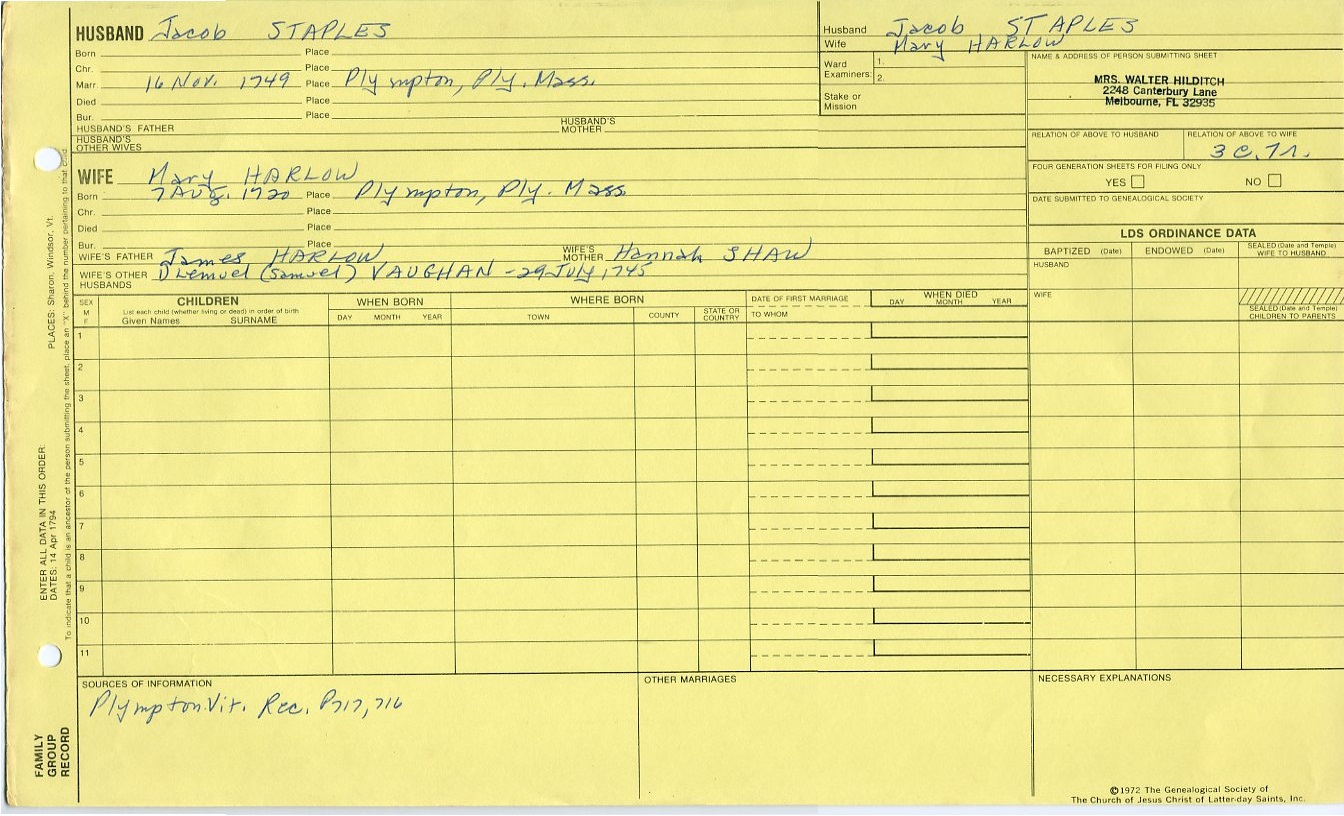 HUSBAND Jacob STAPLES
Born Place
Chr. Place
Marr 16 Nov. 1749 Place Plympton, Ply. Mass.
Died Place
Bur. Place
HUSBAND'S FATHER HUSBAND'S MOTHER
HUSBAND'S OTHER WIVES
Husband Jacob STAPLES
Wife Mary HARLOW
Ward Examiners: 1.
2.
Stake or Mission
NAME & ADDRESS OF PERSON SUBMITTING SHEET
MRS. WALTER HILDITCH
2248 Canterbury Lane
Melbourne, FL 32935
RELATION OF ABOVE TO HUSBAND RELATION OF ABOVE TO WIFE
3 C. 7 r.
FOUR GENERATION SHEETS FOR FILING ONLY
YES NO
DATE SUBMITTED TO GENEALOGICAL SOCIETY
WIFE Mary HARLOW
Born 7 Aug. 1720 Place Plympton, Ply. Mass.
Chr. Place
Died Place
Bur. Place
WIFE'S FATHER James HARLOW WIFE'S MOTHER Hannah SHAW
WIFE'S OTHER HUSBANDS Lemuel (Samuel) VAUGHAN - 29 July, 1745
LDS ORDINANCE DATA
BAPTIZED (Date) ENDOWED (Date) SEALED (Date and Temple) WIFE TO HUSBAND
HUSBAND
WIFE
SEALED (Date and Temple) CHILDREN TO PARENTS
SEX M F
CHILDREN
List each child (whether living or dead) in order of birth
Given Names SURNAME
WHEN BORN
DAY MONTH YEAR
WHERE BORN
TOWN COUNTY STATE OR COUNTRY
DATE OF FIRST MARRIAGE
TO WHOM
WHEN DIED
DAY MONTH YEAR
1
2
3
4
5
6
7
8
9
10
11
SOURCES OF INFORMATION
Plympton Vit. Rec. P717, 716
OTHER MARRIAGES
NECESSARY EXPLANATIONS
©1972 The Genealogical Society of
The Church of Jesus Christ of Latter-day Saints, Inc.
FAMILY
GROUP
RECORD
ENTER ALL DATA IN THIS ORDER:
DATES: 14 Apr 1794
PLACES: Sharon, Windsor, Vt.
To indicate that a child is an ancestor of the person submitting the sheet, place an "X" behind the number pertaining to that child.